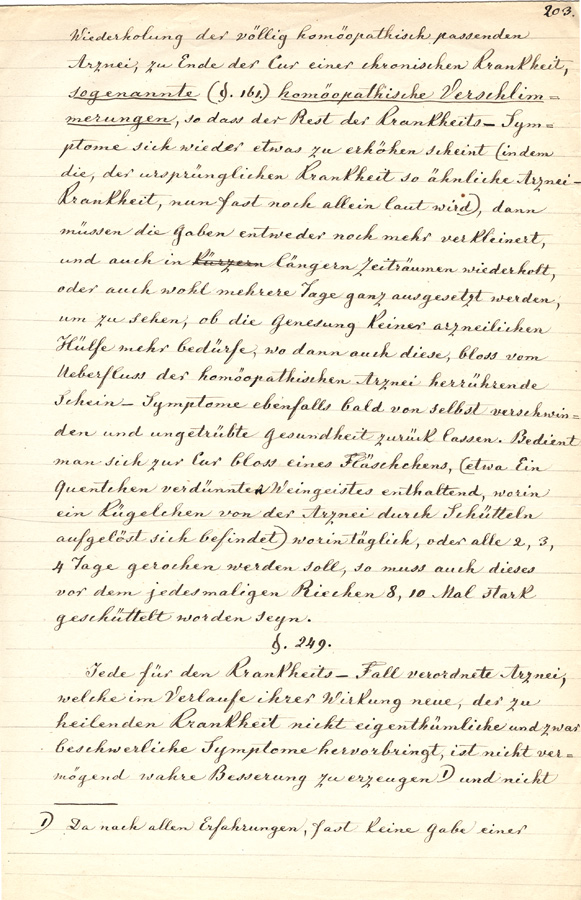 203.
Wiederholung der völlig homöopathisch passenden
Arznei, zu Ende der Cur einer chronischen Krankheit,
sogenannte (§. 161.) homöopathische Verschlim=
merungen, so dass der Rest der Krankheits-Sym=
ptome sich wieder etwas zu erhöhen scheint (indem
die, der ursprünglichen Krankheit so ähnliche Arznei-
Krankheit, nun fast noch allein laut wird), dann
müssen die Gaben entweder noch mehr verkleinert,
und auch in kürzern längern Zeiträumen wiederholt,
oder auch wohl mehrere Tage ganz ausgesetzt werden,
um zu sehen, ob die Genesung keiner arzneilichen
Hülfe mehr bedürfe, wo dann auch diese, bloss vom
Ueberfluss der homöopathischen Arznei herrührende
Schein-Symptome ebenfalls bald von selbst verschwin=
den und ungetrübte Gesundheit zurück lassen. Bedient
man sich zur Cur bloss eines Fläschchens, (etwa Ein
Quentchen verdünnten Weingeistes enthaltend, worin
ein Kügelchen von der Arznei durch Schütteln
aufgelöst sich befindet) worin täglich, oder alle 2, 3,
4 Tage gerochen werden soll, so muss auch dieses
vor dem jedesmaligen Riechen 8, 10 Mal stark
geschüttelt worden seyn.
§. 249.
Jede für den Krankheits-Fall verordnete Arznei,
welche im Verlaufe ihrer Wirkung neue, der zu
heilenden Krankheit nicht eigenthümliche und zwar
beschwerliche Symptome hervorbringt, ist nicht ver=
mögend wahre Besserung zu erzeugen 1) und nicht
1) Da nach allen Erfahrungen, fast keine Gabe einer